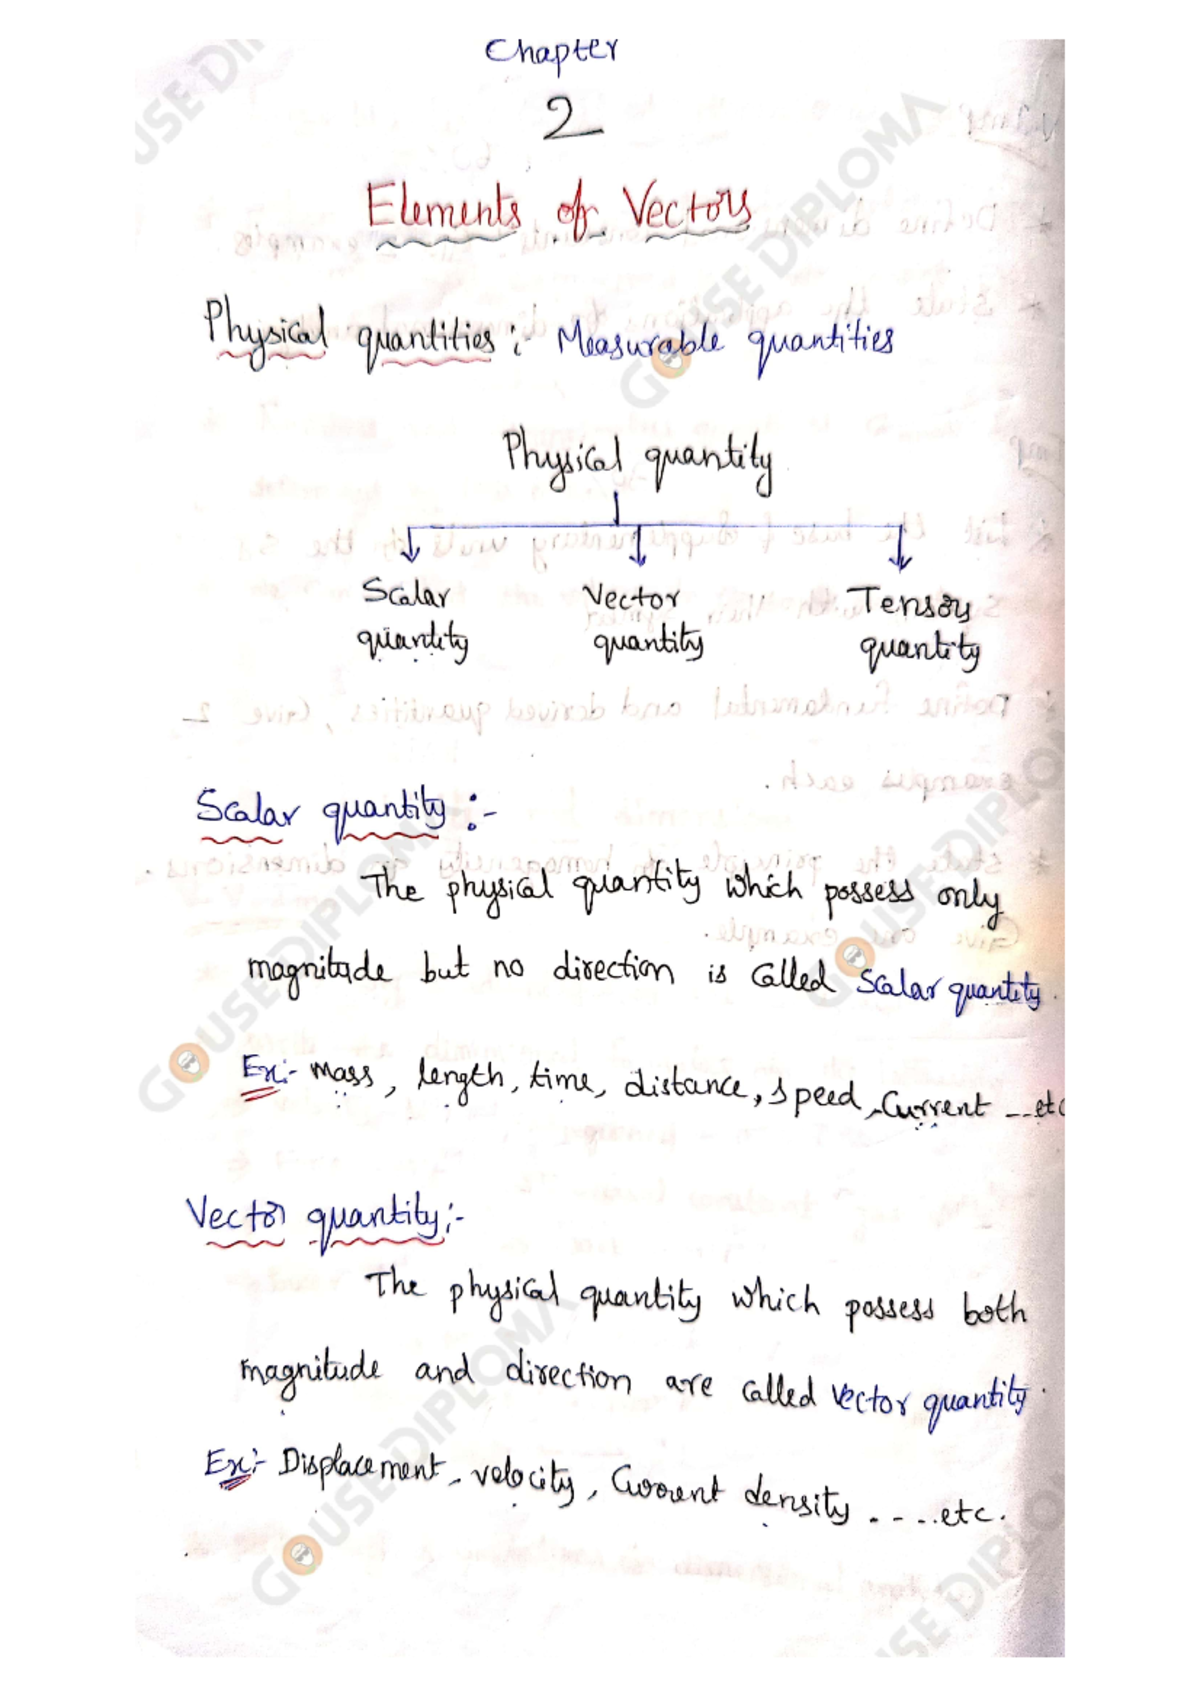 Chapter
2
Elements of Vectors
Physical quantities :- Measurable quantities
Physical quantity
Scalar quantity
Vector quantity
Tensor quantity
Scalar quantity :-
The physical quantity which possess only
magnitude but no direction is called scalar quantity.
Ex:- mass, length, time, distance, speed, current ---etc
Vector quantity :-
The physical quantity which possess both
magnitude and direction are called vector quantity.
Ex:- Displacement, velocity, Current density - - - ..etc.
GOUSE DIPLOMA